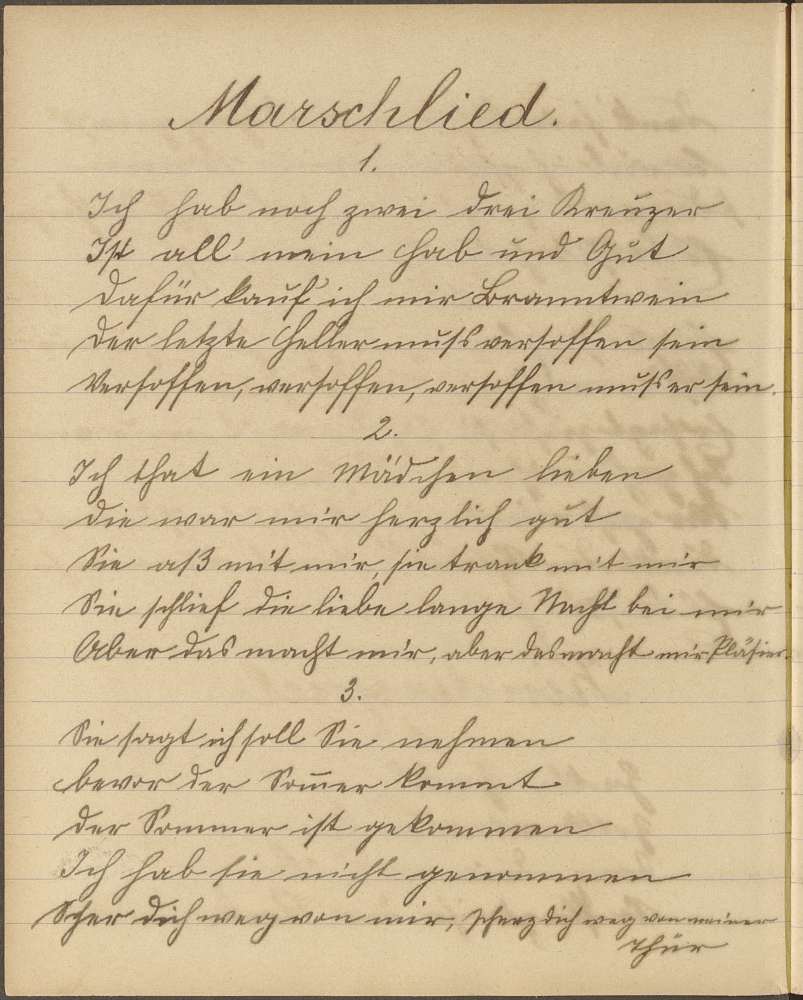 Marschlied.
1.
Ich hab noch zwei drei Kreuzer
Ist all' mein Hab und Gut
Dafür kauf' ich mir Branntwein
Der letzte Heller muss versoffen sein
Versoffen, versoffen, versoffen muss er sein.
2.
Ich that ein Mädchen lieben
Die war mir herzlich gut
Sie aß mit mir, sie trank mit mir
Sie schlief die liebe lange Nacht bei mir
Aber das macht mir, aber das macht mir Pläsier.
3.
Sie sagt ich soll Sie nehmen
bevor der Som̅er kommt
Der Sommer ist gekommen
Ich hab sie nicht genommen
Scher dich weg von mir, scherz dich weg von meiner
Thür